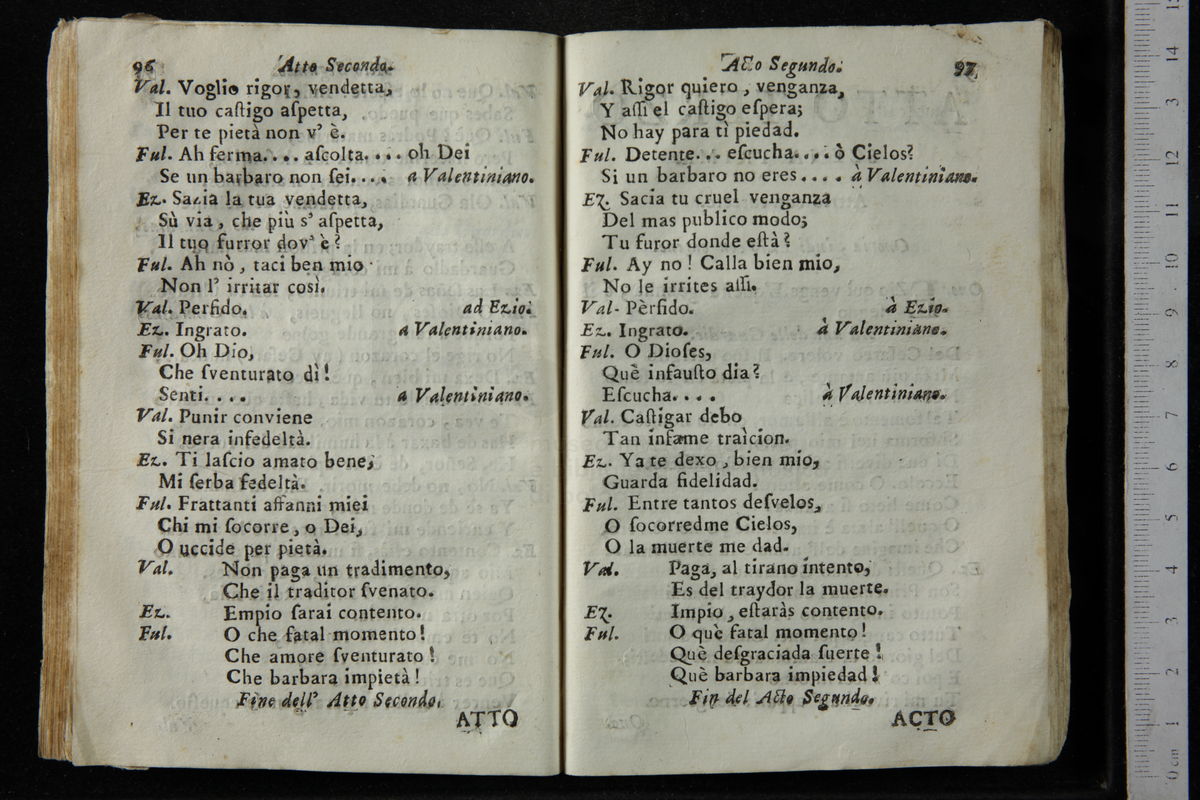 96 Atto Secondo.
Val. Voglio rigor, vendetta,
Il tuo caſtigo aſpetta,
Per te pietà non v' è.
Ful. Ah ferma.... aſcolta.... oh Dei
Se un barbaro non ſei.... a Valentiniano.
Ez. Sazia la tua vendetta,
Sù via, che più s' aſpetta,
Il tuo furror dov' è?
Ful. Ah nò, taci ben mio
Non l' irritar così.
Val. Perfido. ad Ezio.
Ez. Ingrato. a Valentiniano.
Ful. Oh Dio,
Che ſventurato dì!
Senti.... a Valentiniano.
Val. Punir conviene
Si nera infedeltà.
Ez. Ti laſcio amato bene,
Mi ſerba fedeltà.
Ful. Frattanti affanni miei
Chi mi ſocorre, o Dei,
O uccide per pietà.
Val. Non paga un tradimento,
Che il traditor ſvenato.
Ez. Empio ſarai contento.
Ful. O che fatal momento!
Che amore ſventurato!
Che barbara impietà!
Fine dell' Atto Secondo.
ATTO
Acto Segundo. 97
Val. Rigor quiero, venganza,
Y aſſi el caſtigo eſpera;
No hay para tì piedad.
Ful. Detente... eſcucha.... ò Cielos?
Si un barbaro no eres.... à Valentiniano.
Ez. Sacia tu cruel venganza
Del mas publico modo;
Tu furor donde eſtà?
Ful. Ay no! Calla bien mio,
No le irrites aſſi.
Val. Pèrfido. à Ezio.
Ez. Ingrato. à Valentiniano.
Ful. O Dioſes,
Què infauſto dia?
Eſcucha.... à Valentiniano.
Val. Caſtigar debo
Tan infame traìcion.
Ez. Ya te dexo, bien mio,
Guarda fidelidad.
Ful. Entre tantos deſvelos,
O ſocorredme Cielos,
O la muerte me dad.
Val. Paga, al tirano intento,
Es del traydor la muerte.
Ez. Impio, eſtaràs contento.
Ful. O què fatal momento!
Què deſgraciada ſuerte!
Què barbara impiedad!
Fin del Acto Segundo.
ACTO
0 cm 1 2 3 4 5 6 7 8 9 10 11 12 3 14